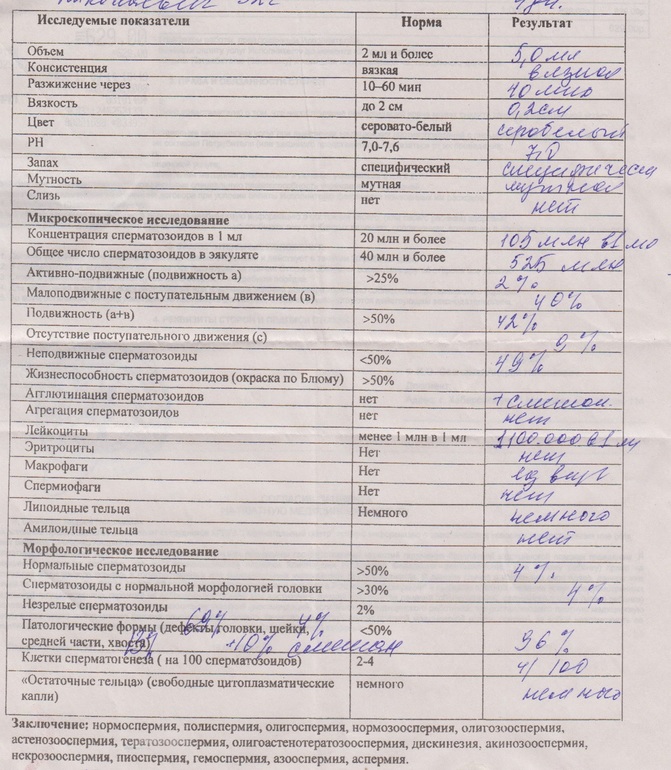 Исследуемые показатели Норма Результат
Объем 2 мл и более 5,0 мл
Консистенция вязкая вязкая
Разжижение через 10–60 мин 40 мин
Вязкость до 2 см 0,2см
Цвет серовато-белый серобелый
РН 7,0-7,6 7,0
Запах специфический специфическ
Мутность мутная мутная
Слизь нет нет
Микроскопическое исследование
Концентрация сперматозоидов в 1 мл 20 млн и более 105 млн в 1 мл
Общее число сперматозоидов в эякуляте 40 млн и более 525 млн
Активно-подвижные (подвижность а) >25% 2%
Малоподвижные с поступательным движением (в) 40%
Подвижность (а+в) >50% 42%
Отсутствие поступательного движения (с) 9%
Неподвижные сперматозоиды <50% 49%
Жизнеспособность сперматозоидов (окраска по Блюму) >50%
Агглютинация сперматозоидов нет + смешан.
Агрегация сперматозоидов нет нет
Лейкоциты менее 1 млн в 1 мл 1100.000 в 1 мл
Эритроциты Нет нет
Макрофаги Нет ед в
Спермиофаги Нет нет
Липоидные тельца Немного немного
Амилоидные тельца нет
Морфологическое исследование
Нормальные сперматозоиды >50% 4%
Сперматозоиды с нормальной морфологией головки >30% 4%
Незрелые сперматозоиды 2%
69% 4%
Патологические формы (дефекты головки, шейки, <50% 96%
средней части, хвоста) 13% +10% смешан
Клетки сперматогенеза ( на 100 сперматозоидов) 2-4 4/100
«Остаточные тельца» (свободные цитоплазматические немного немного
капли)
Заключение; нормоспермия, полиспермия, олигоспермия, нормозооспермия, олигозооспермия,
астенозооспермия, тератозооспермия, олигоастенотератозооспермия, дискинезия, акинозооспермия,
некрозооспермия, пиоспермия, гемоспермия, азооспермия, аспермия.